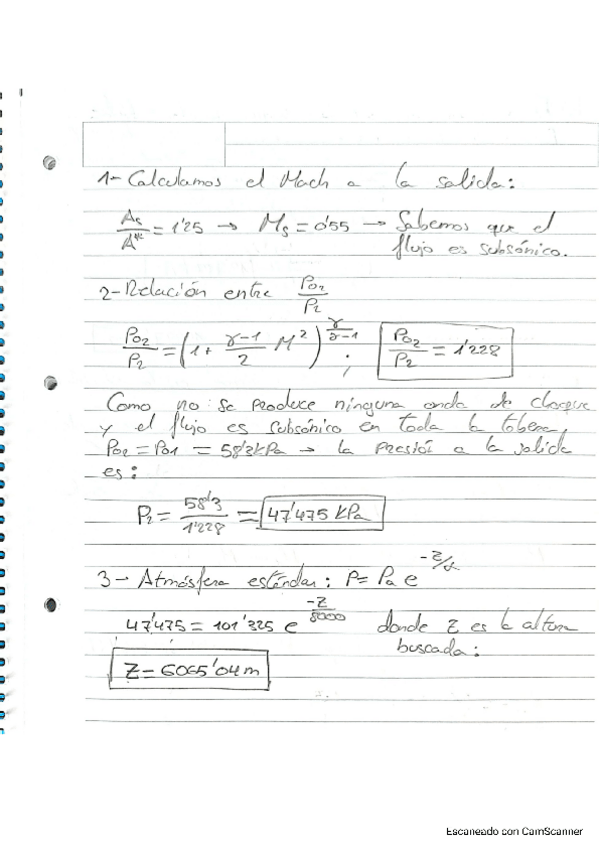 1- Calculamos el Mach a la salida:
As/A* = 1'25 → Ms = 0'55 → Sabemos que el
flujo es subsónico.
2- Relación entre Po2/P2
Po2/P2 = (1 + γ-1/2 M²)^γ/γ-1 ; Po2/P2 = 1'228
Como no se produce ninguna onda de choque
y el flujo es subsónico en toda la tobera,
Po2 = Po1 = 58'3kPa → la presión a la salida
es:
P2 = 58'3/1'228 = 47'475 kPa
3- Atmósfera estándar: P = Pa e^-z/α
47'475 = 101'325 e^-z/8000 donde z es la altura
buscada:
Z = 6065'04 m
Escaneado con CamScanner